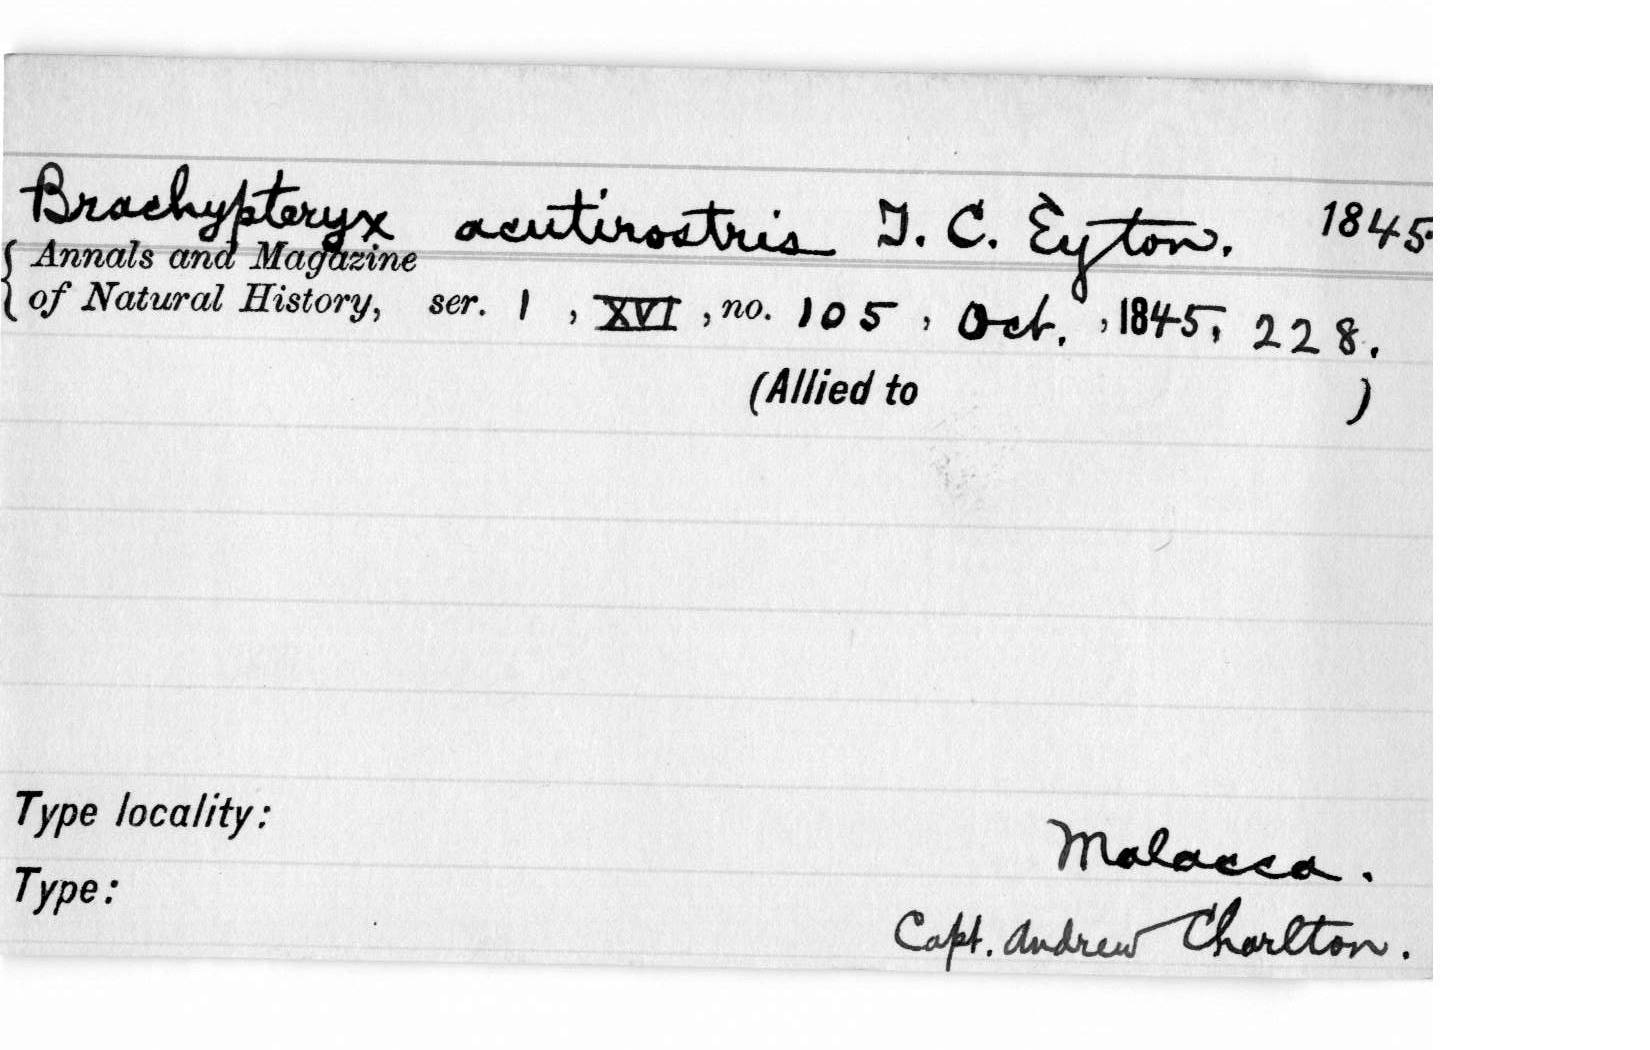 Brachypteryx acutirostris T. C. Eyton. 1845
Annals and Magazine
of Natural History, ser. 1, XVI, no. 105, Oct., 1845, 228.
(Allied to )
Type locality: Malacca.
Type: Capt. Andrew Charlton.